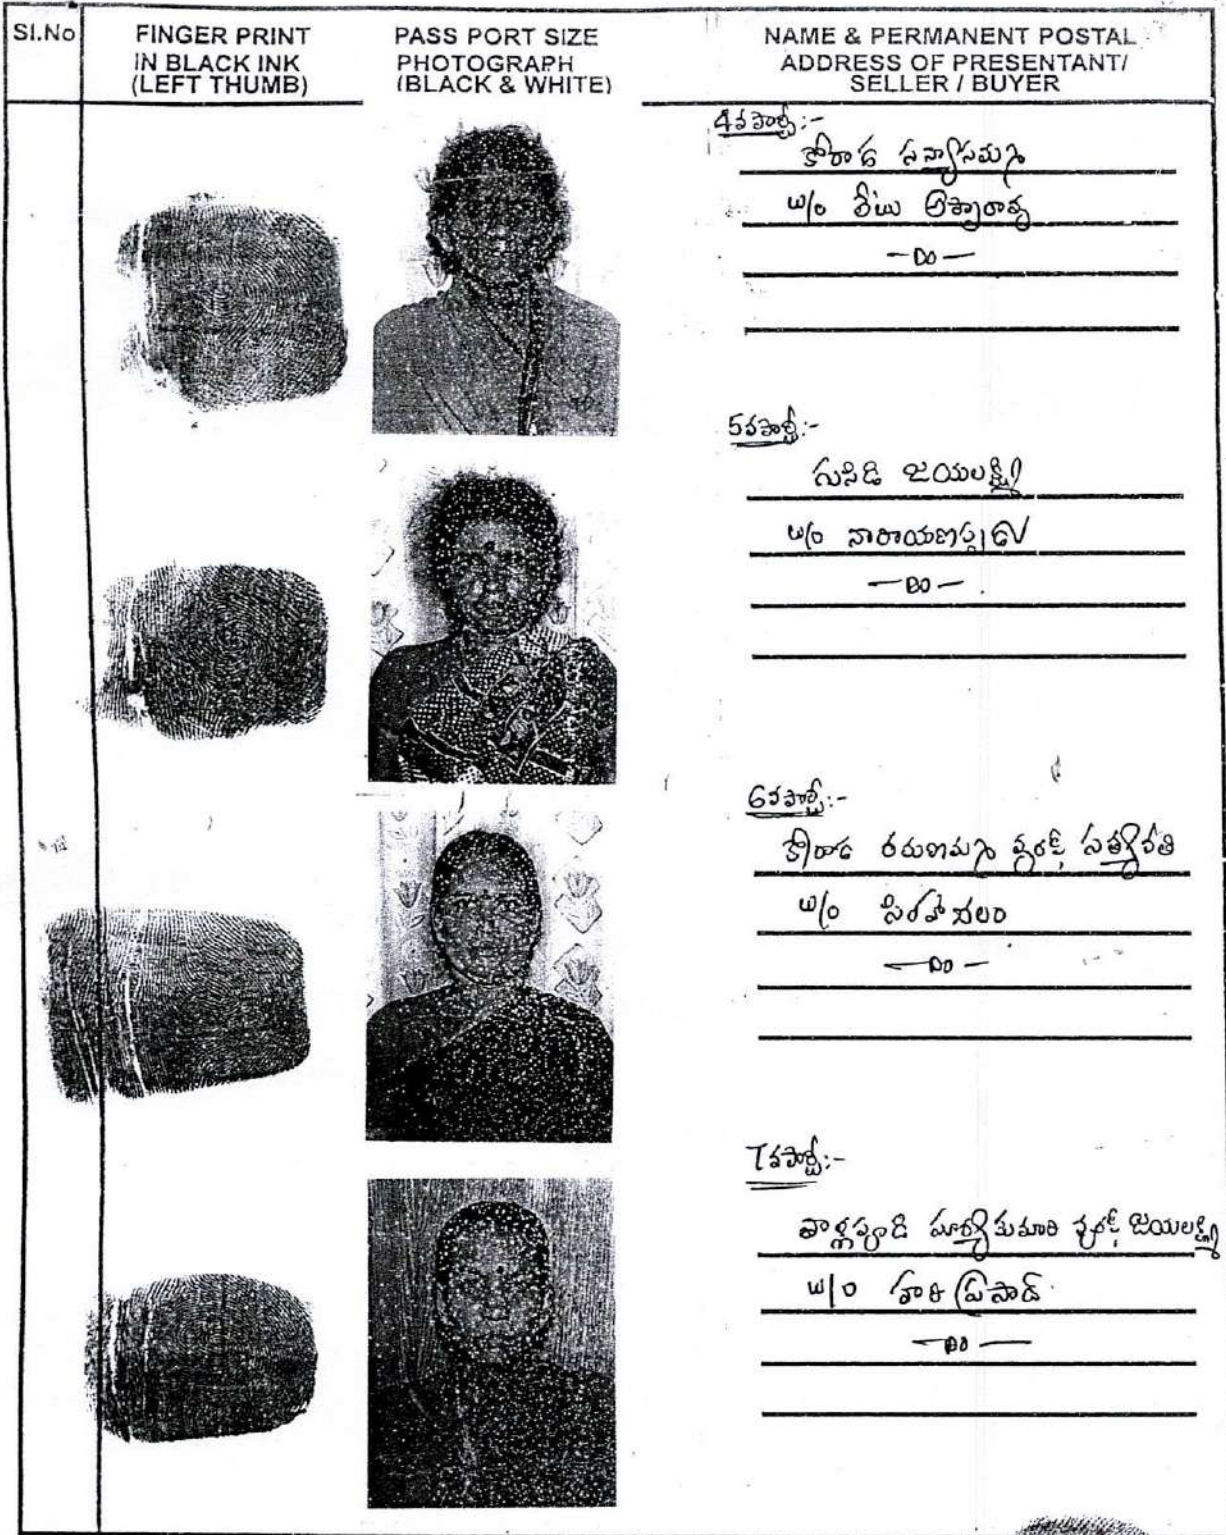 Sl.No
FINGER PRINT
IN BLACK INK
(LEFT THUMB)
PASS PORT SIZE
PHOTOGRAPH
(BLACK & WHITE)
NAME & PERMANENT POSTAL
ADDRESS OF PRESENTANT/
SELLER / BUYER
4వ పార్టీ:-
కోరాడ సన్యాసమ్మ
W/o లేటు అప్పారావు
— Do —
5వ పార్టీ:-
గుసిడి జయలక్ష్మి
W/o
— Do —
6వ పార్టీ:-
కోరాడ కరుణమ్మ వురఫ్ సత్యవతి
W/o సింహాచలం
— Do —
7వ పార్టీ:-
తాళ్లపూడి సూర్యకుమారి వురఫ్ జయలక్ష్మి
W/o హరి ప్రసాద్
— Do —